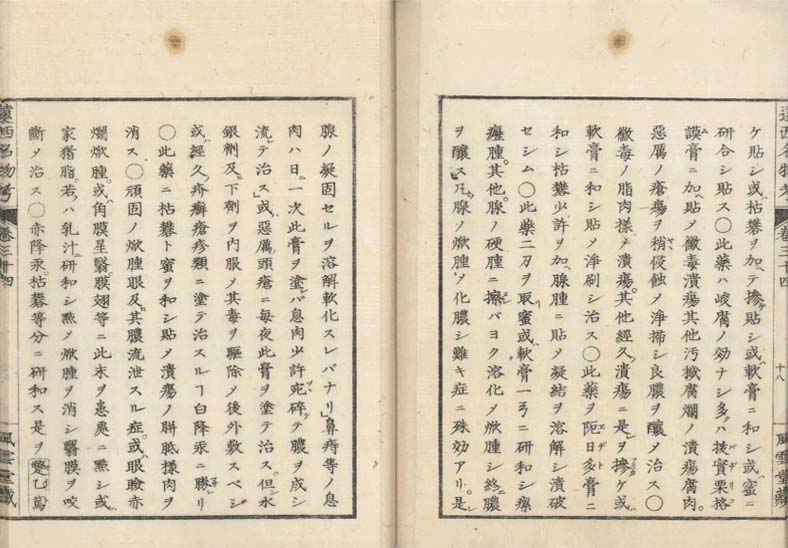 ケ貼シ或枯礬ヲ加テ摻貼シ或軟膏ニ和シ或蜜ニ
研合シ貼ス〇此藥ハ峻腐ノ効ナシ多ハ抜實栗格
謨膏ニ加貼メ黴毒潰瘍其他汚膩腐爛ノ潰瘍腐肉
惡厲ノ瘡瘍ヲ稍侵蝕メ淨掃シ良膿ヲ釀メ治ス〇
黴毒ノ脂肉樣ノ潰瘍其他經久潰瘍ニ是ヲ摻ケ或
軟膏ニ和シ貼メ淨刷シ治ス〇此藥ヲ阨日多膏ニ
和シ枯礬少許ヲ加腺腫ニ貼メ凝結ヲ溶解シ潰破
セシム〇此藥二刃ヲ取蜜或軟膏一ニ研和シ瘰
癧腫其他腺ノ硬腫ニ擦バヨク溶化メ焮腫シ終膿
ヲ釀ス凡腺ノ焮腫メ化膿シ難キ症ニ殊効アリ是
腺ノ凝固セルヲ溶解軟化スレバナリ鼻痔等ノ息
肉ハ日一次此膏ヲ塗バ息肉少許宛碎テ膿ヲ成シ
流テ治ス或惡厲頭瘡ニ毎夜此膏ヲ塗テ治ス但水
銀劑及下劑ヲ内服メ其毒ヲ驅除メ後外敷スベシ
或經久疥癬瘡疹類ニ塗テ治スルヿ白降汞ニ勝リ
〇此藥ニ枯礬ト蜜ヲ和シ貼メ潰瘍ノ胼胝樣肉ヲ
消ス〇頑固ノ焮腫眼及其膿流泄スル症或眼瞼赤
爛焮腫或角膜呈翳膜翅等ニ此末ヲ患處ニ點シ或
家猪脂若ハ乳汁ニ研和シ點メ焮腫ヲ消シ翳膜ヲ咬
斷メ治ス〇赤降汞枯礬等分ニ研和ス是ヲ
遠西名物考
卷三十四
十八
風雲堂藏